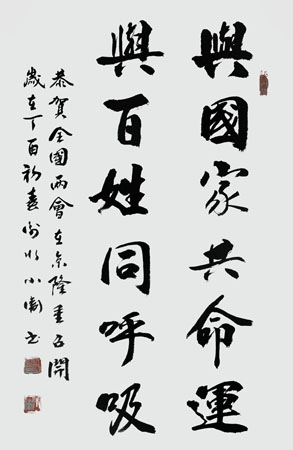 與國家共命運
與百姓同呼吸
恭賀全國兩會在京隆重召開
歲在丁酉初春
書